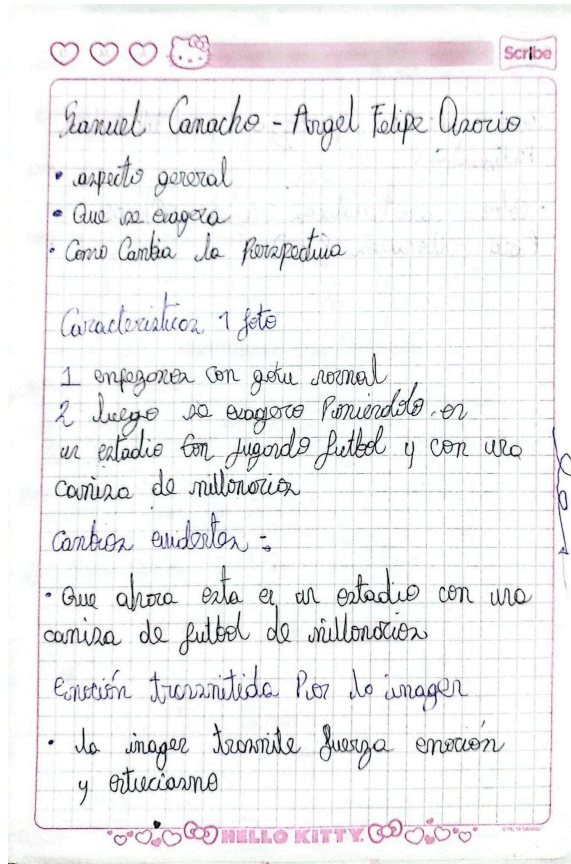 Scribe
Samuel Camacho - Angel Felipe Osorio
• aspecto general
• Que se exagera
• Como Cambia la Perspectiva
Caracteristicas 1 foto
1 empezones con goku normal
2 luego se exagero Poniendolo en
un estadio con jugando futbol y con una
camisa de millonarios
Cambios evidentes :
• Que ahora esta en un estadio con una
camisa de futbol de millonarios
Emoción transmitida Por la imagen
• la imagen transmite fuerza emoción
y
HELLO KITTY.